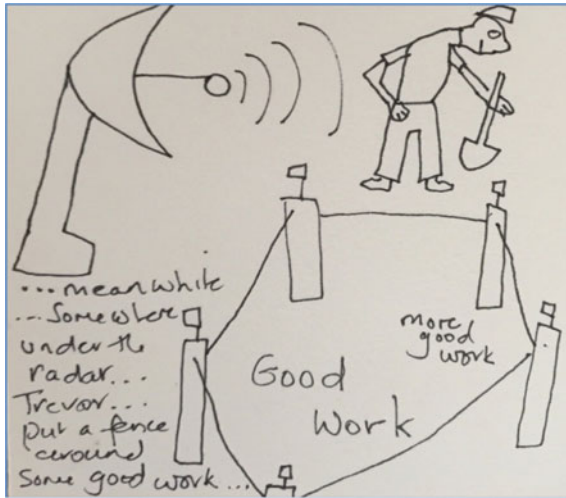 ...meanwhile
...Somewhere
under the
radar...
Trevor...
put a fence
around
Some good work...
Good
Work
more
good
work